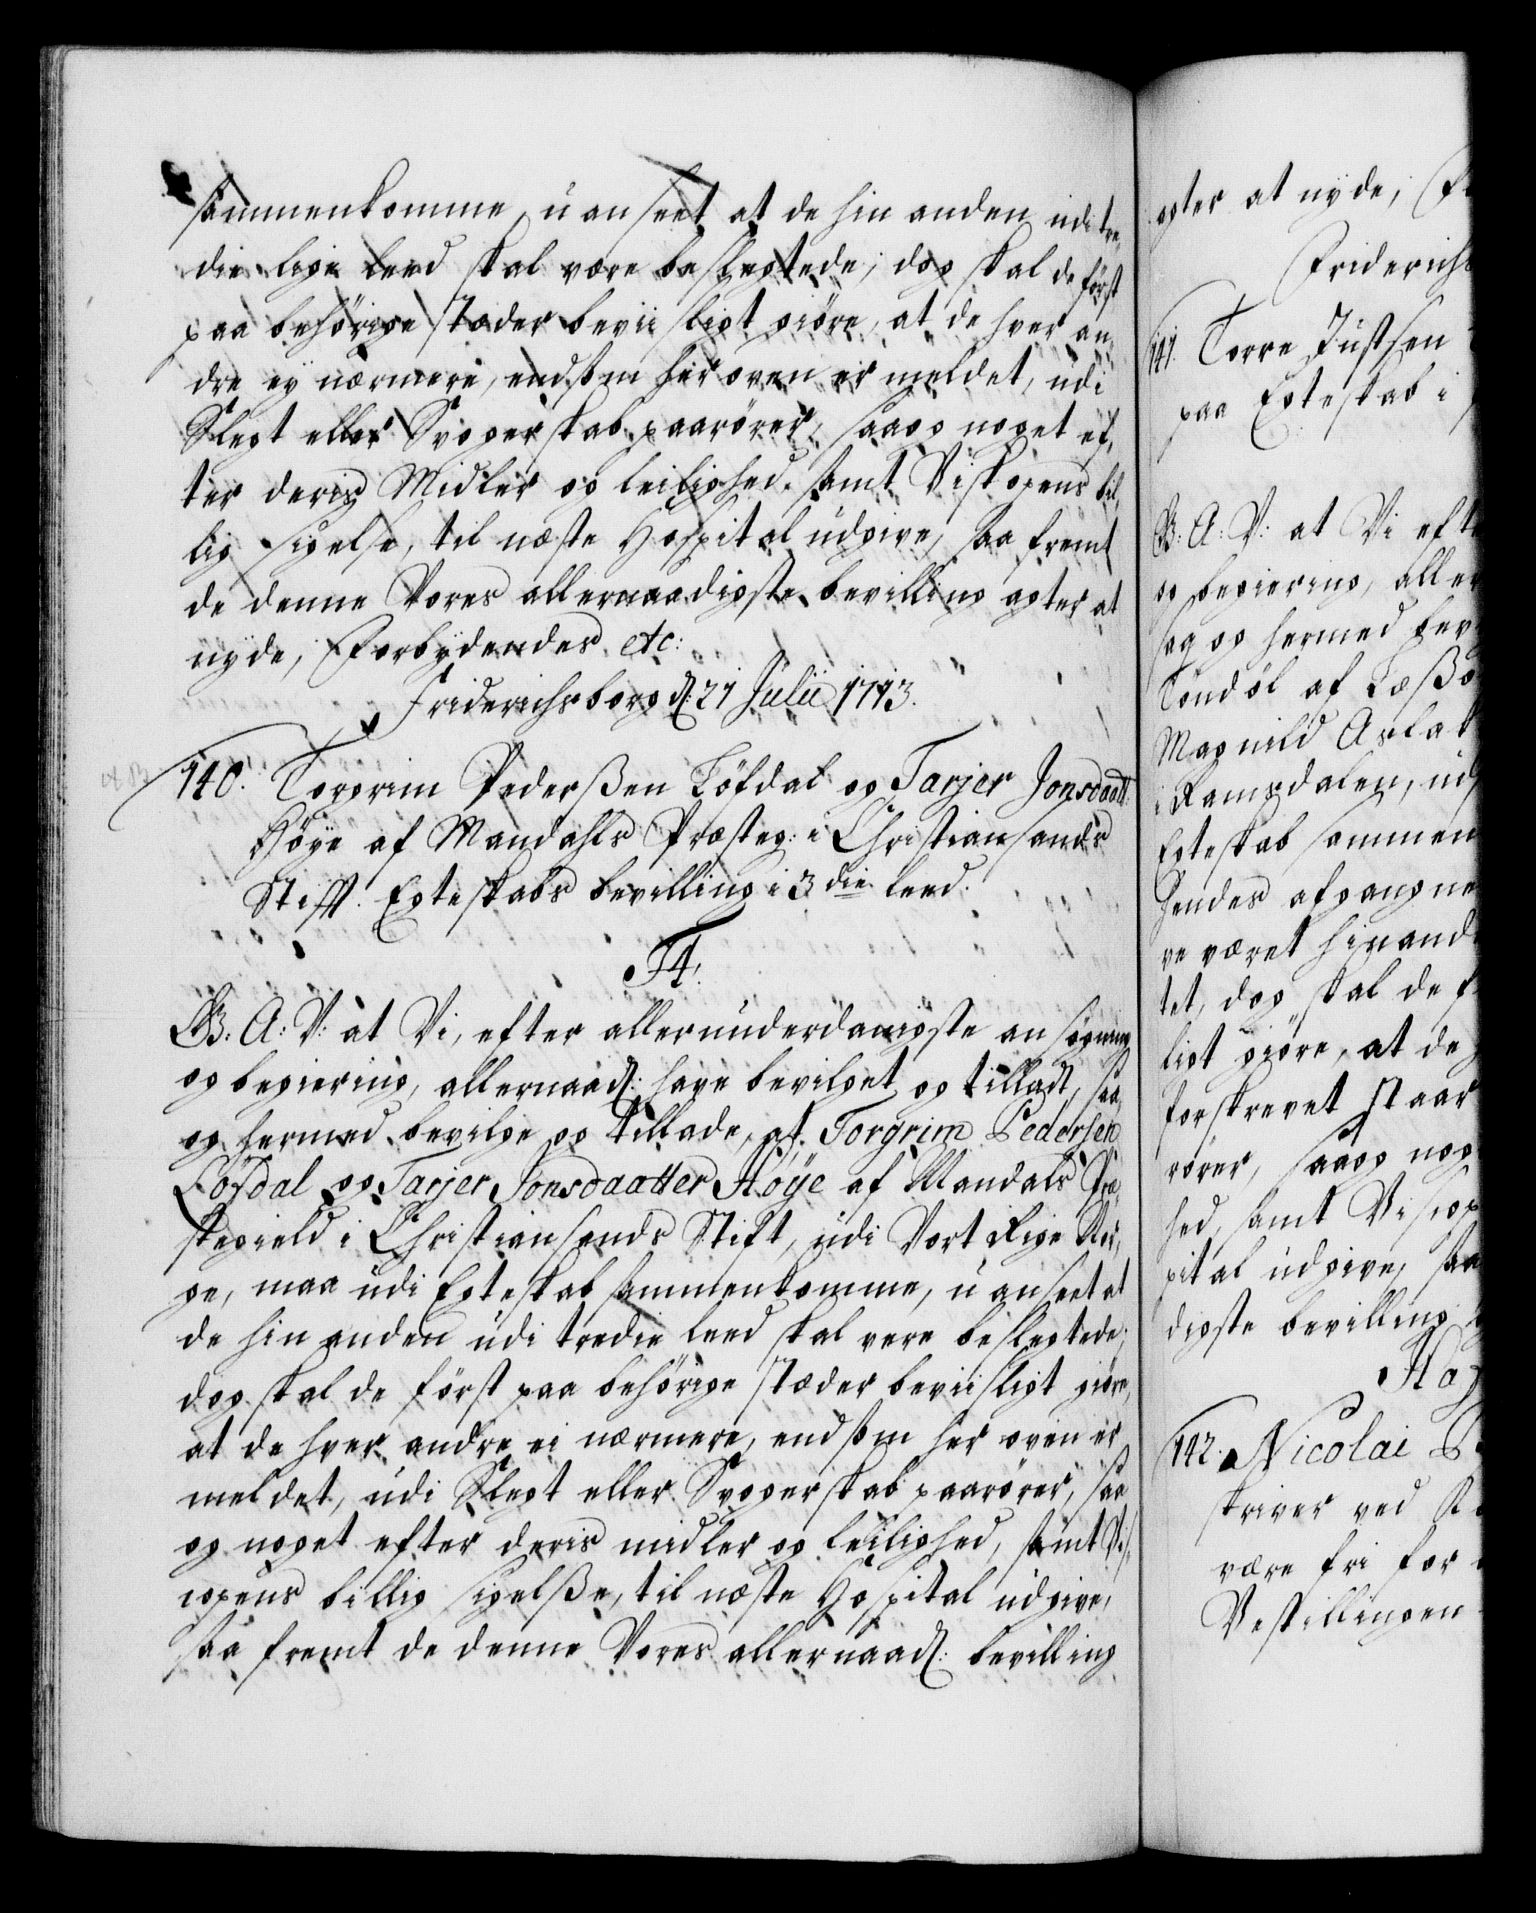 sammenkomme, uanseet at de hin anden udi tre,
die lige leed skal være beslegtede; dog skal de först
paa behörige stæder beviisligt giöre, at de hver an,
dre ey nærmere, endsom her oven er meldet, udi
Slegt eller Svogerskab paarörer, saa og noget ef,
ter deris Midler og leilighed, samt Biskopens bil
lig sigelse, til næste Hospital udgive, saa fremt
de denne Vores allernaadigste bevilling agter at
nyde, Forbydendes etc:
Friderichsborg d: 21 Julii 1713.
140. Torgrim Pederßen Löfdal og Tarjer Jonsdaatt:
Höye af Mandahls Præsteg: i Christiansands
Stifft. Egteskabs bevilling i 3die leed.
F4.
G. A: V: at Vi, efter allerunderdanigste ansögning
og begiering, allernaad: have bevilget og tilladt, saa
og hermed bevilge og tillade, at Torgrim Pedersen
Löfdal og Tarjer Jonsdaatter Höÿe af Mandals Præ,
stegield i Christiansands Stift, udi Vort Rige Nor,
ge, maa udi Egteskab sammenkomme, uanseet at
de hin anden udi tredie leed skal vere beslegtede;
dog skal de först paa behörige stæder beviisligt giöre,
at de hver andre ei nærmere, endsom her oven er
meldet, udi Slegt eller Svogerskab paarörer, saa
og noget efter deris midler og leilighed, samt Bi,
copens billig sigelße, til næste Hospital udgive,
saa fremt de denne Vores allernaad: bevilling
agter at nyde; F
Friderichs
141. Torre Justsen
paa Egteskab i
G: A: V: at Vi eft
og begiering, aller
saa og hermed bev
Tondöl af Læßö
Magnild Aslak
i Ramsdalen, ud
Egteskab sammen
hendes afgangne
ve været hinand
tet, dog skal de f
ligt giöre, at de
forskrevet staar
rörer, saa og nog
hed, samt Biscop
pital udgive, saa
digste bevilling
Ha
142. Nicolai P
skriver ved
være fri for
Bestillingen